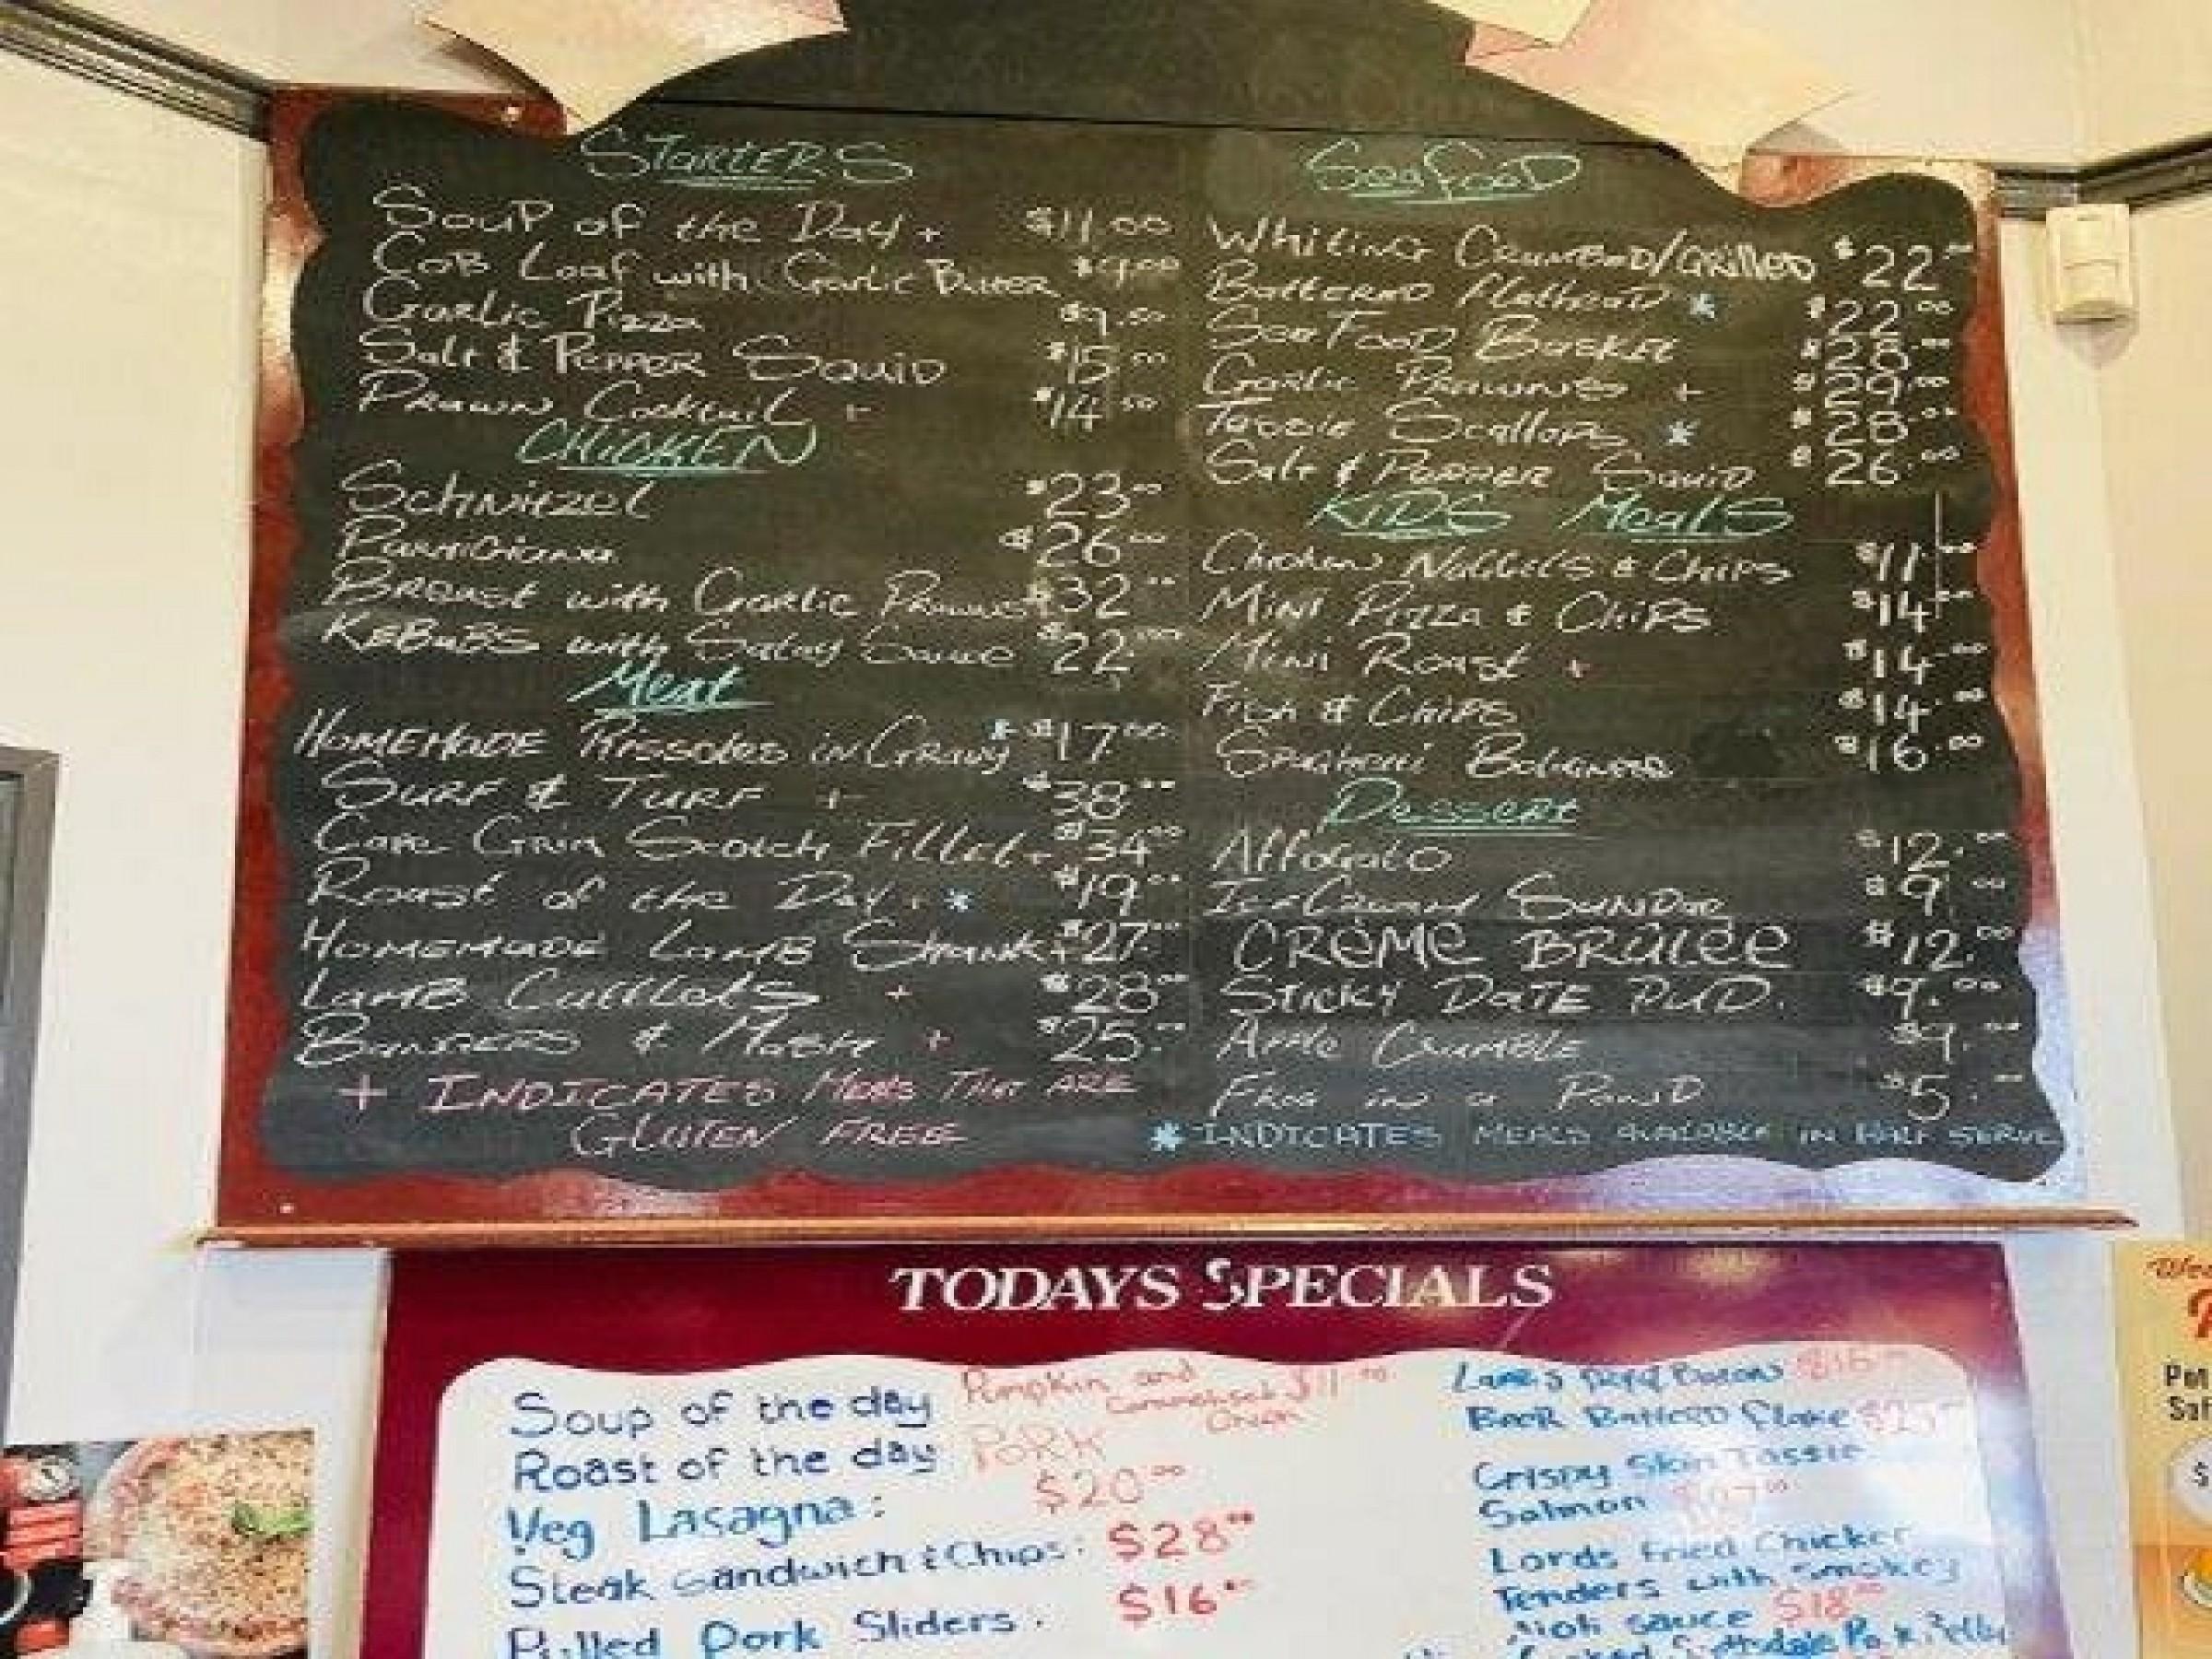 STARTERS
Soup of the Day + $11.00
Cob Loaf with Garlic Butter $9.00
Garlic Pizza $9.50
Salt & Pepper Squid $15.00
Prawn Cocktail + $14.50
CHICKEN
Schnitzel $23.00
Parmigiana $26.00
Breast with Garlic Prawns $32.00
Kebabs with Satay Sauce $22.00
Meat
Homemade Rissoles in Gravy * $17.00
Surf & Turf + $38.00
Cape Grim Scotch Fillet + $34.00
Roast of the Day + * $19.00
Homemade Lamb Shank + $27.00
Lamb Cutlets + $28.00
Bangers & Mash + $25.00
+ INDICATES Meals That ARE
GLUTEN FREE
Seafood
Whiting Crumbed/Grilled $22.00
Battered Flathead * $22.00
Seafood Basket $28.00
Garlic Prawns + $29.00
Tassie Scallops * $28.00
Salt & Pepper Squid $26.00
KIDS Meals
Chicken Nuggets & Chips $11.00
Mini Pizza & Chips $14.00
Mini Roast + $14.00
Fish & Chips $14.00
Spaghetti Bolognese $16.00
Dessert
Affogato $12.00
Ice Cream Sundae $9.00
CRÈME BRÛLEE $12.00
STICKY DATE PUD. $9.00
Apple Crumble $9.00
Frog in a Pond $5.00
* INDICATES MEALS AVAILABLE IN HALF SERVE
TODAYS SPECIALS
Soup of the day Pumpkin and Caramelised Onion $11.00
Roast of the day PORK
$20.00
Veg Lasagna:
Steak Sandwich & Chips: $28.00
Pulled Pork Sliders: $16.00
$16
Beer Batterd Flake
Crispy Skin Tassie
Salmon
Lords Fried Chicken
Tenders with smokey
Aioli sauce $18.00
Pet
$